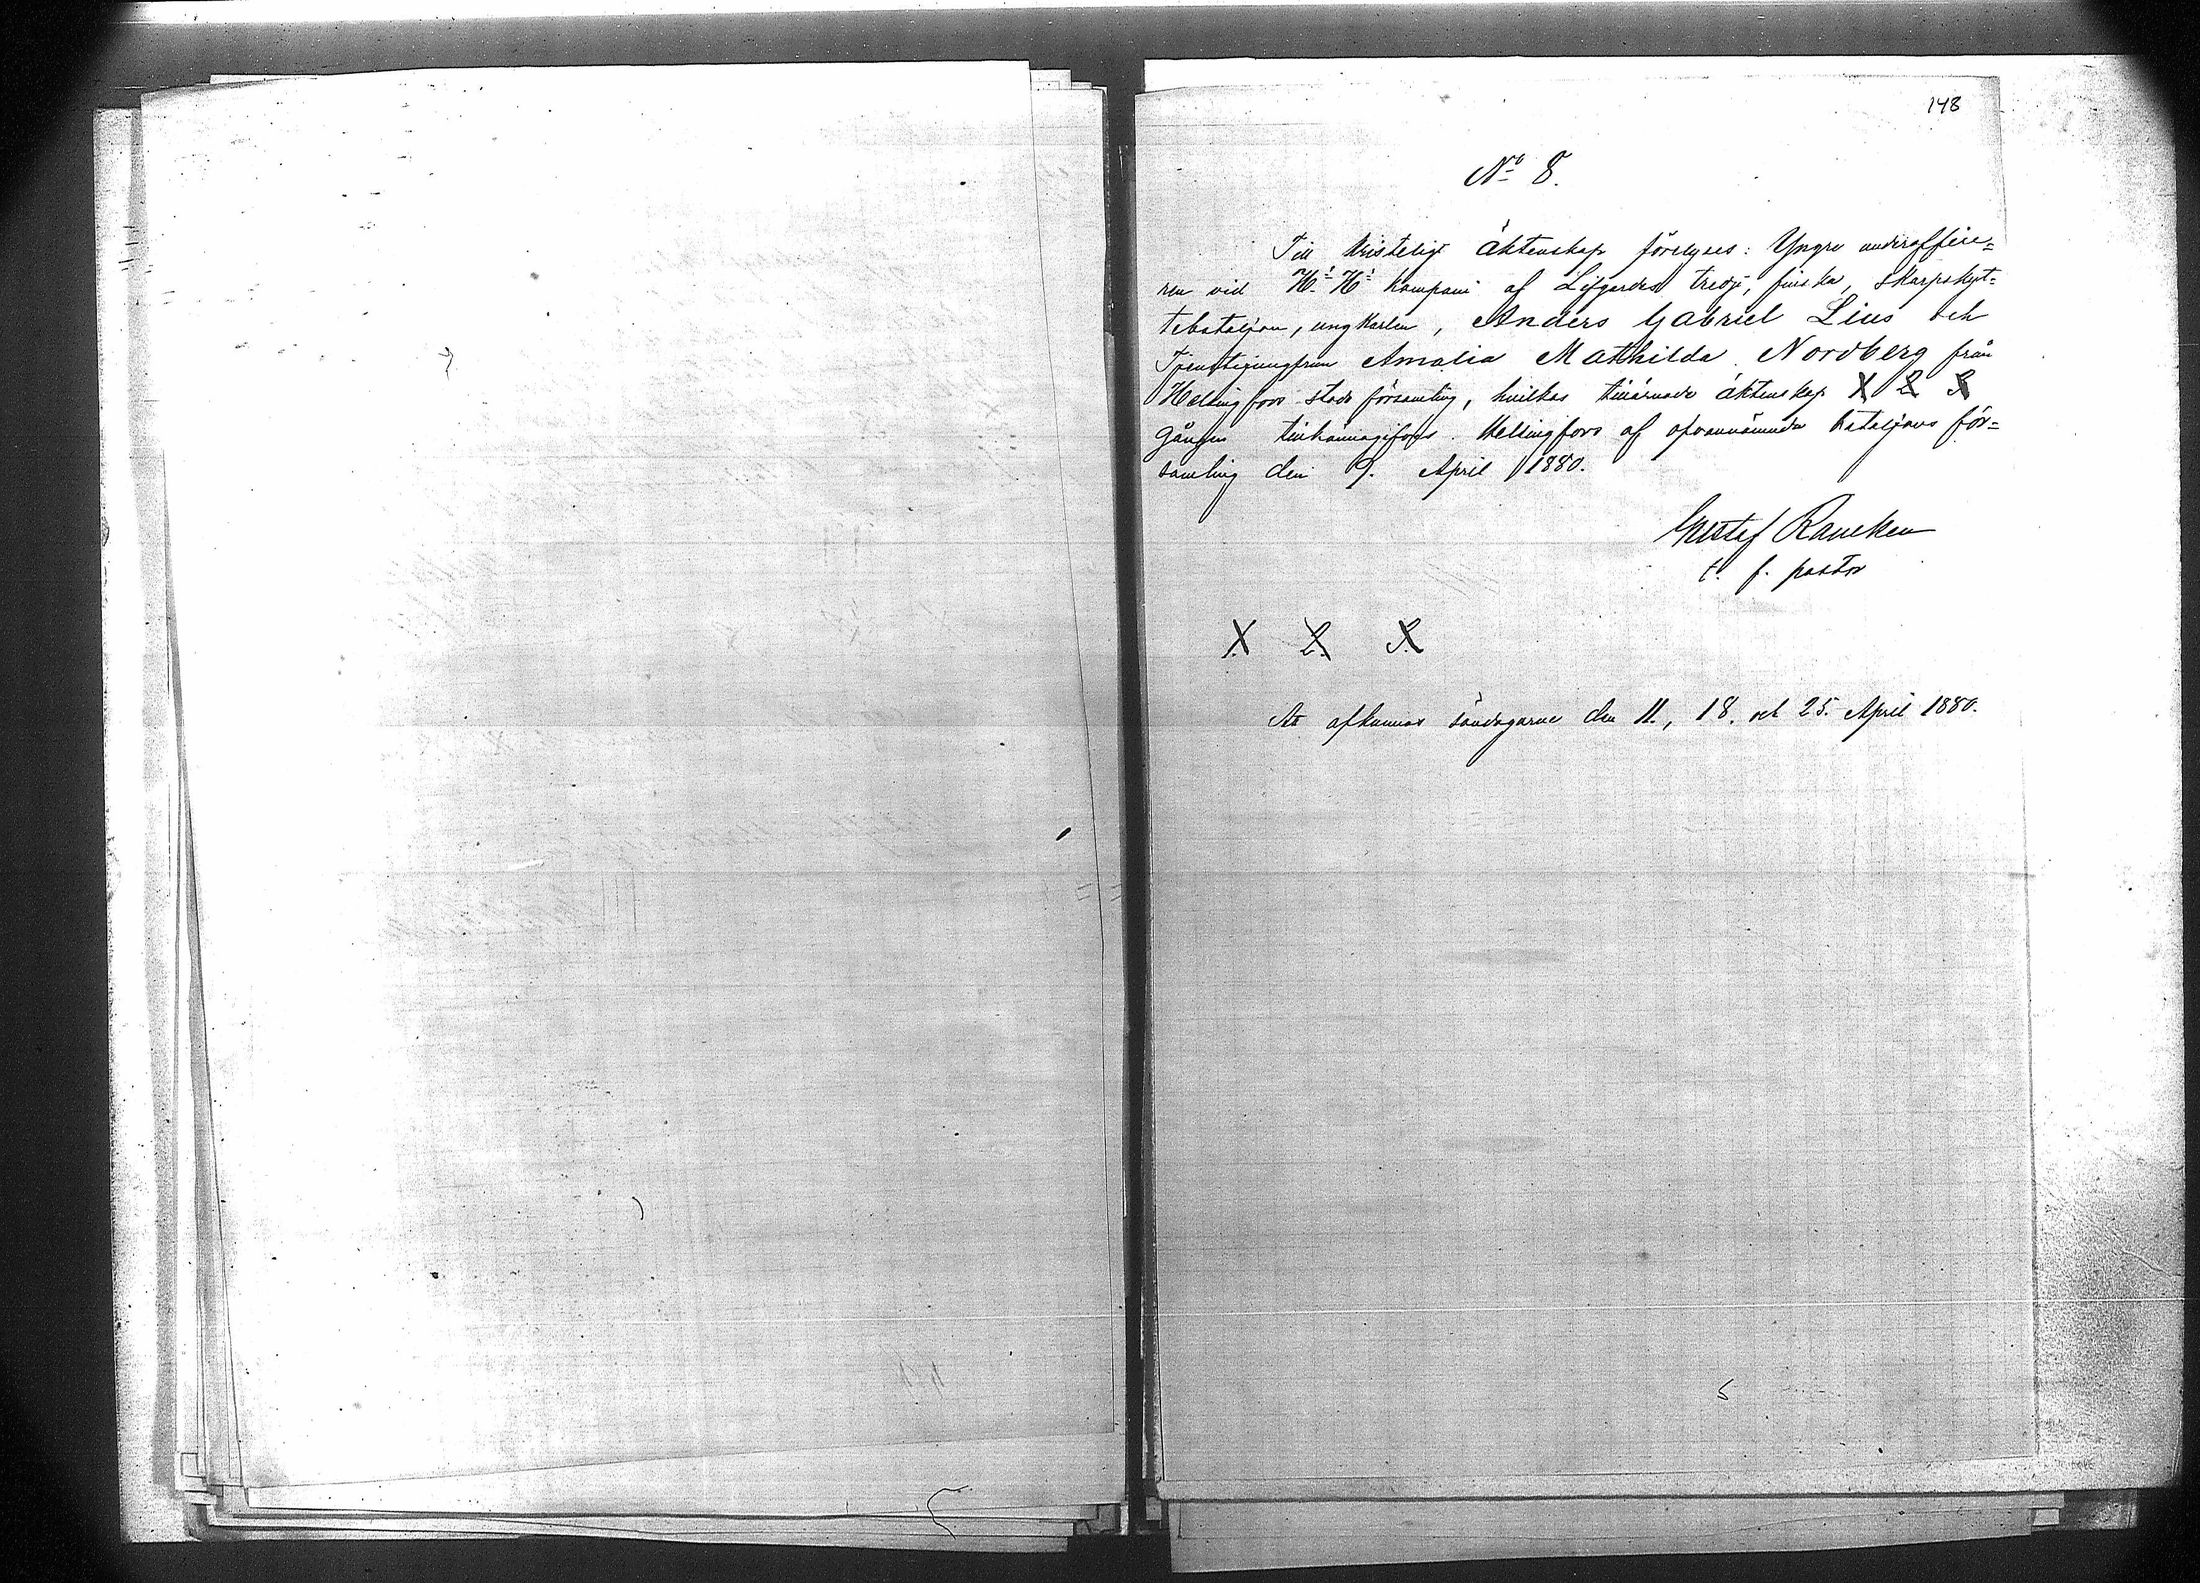 148
No 8.
Till kristeligt äktenskap förelyses: Yngre underoffice=
ren vid H:s H:s kompani af Lifgardes tredje, finska, skarpskyt=
tebataljon, ungkarlen, Anders Gabriel Lius och
Tjenstejungfrun Amalia Mathilda Nordberg från
Helsingfors stads församling, hvilkas tillärnade äktenskap 1 2 3
gången tillkännagifves. Helsingfors af ofvannämnda bataljons för=
samling den 9. April 1880.
Gustaf Rancken
t. f. pastor
1. 2. 3.
At afkunnas söndagarne den 11., 18. och 25. April 1880.